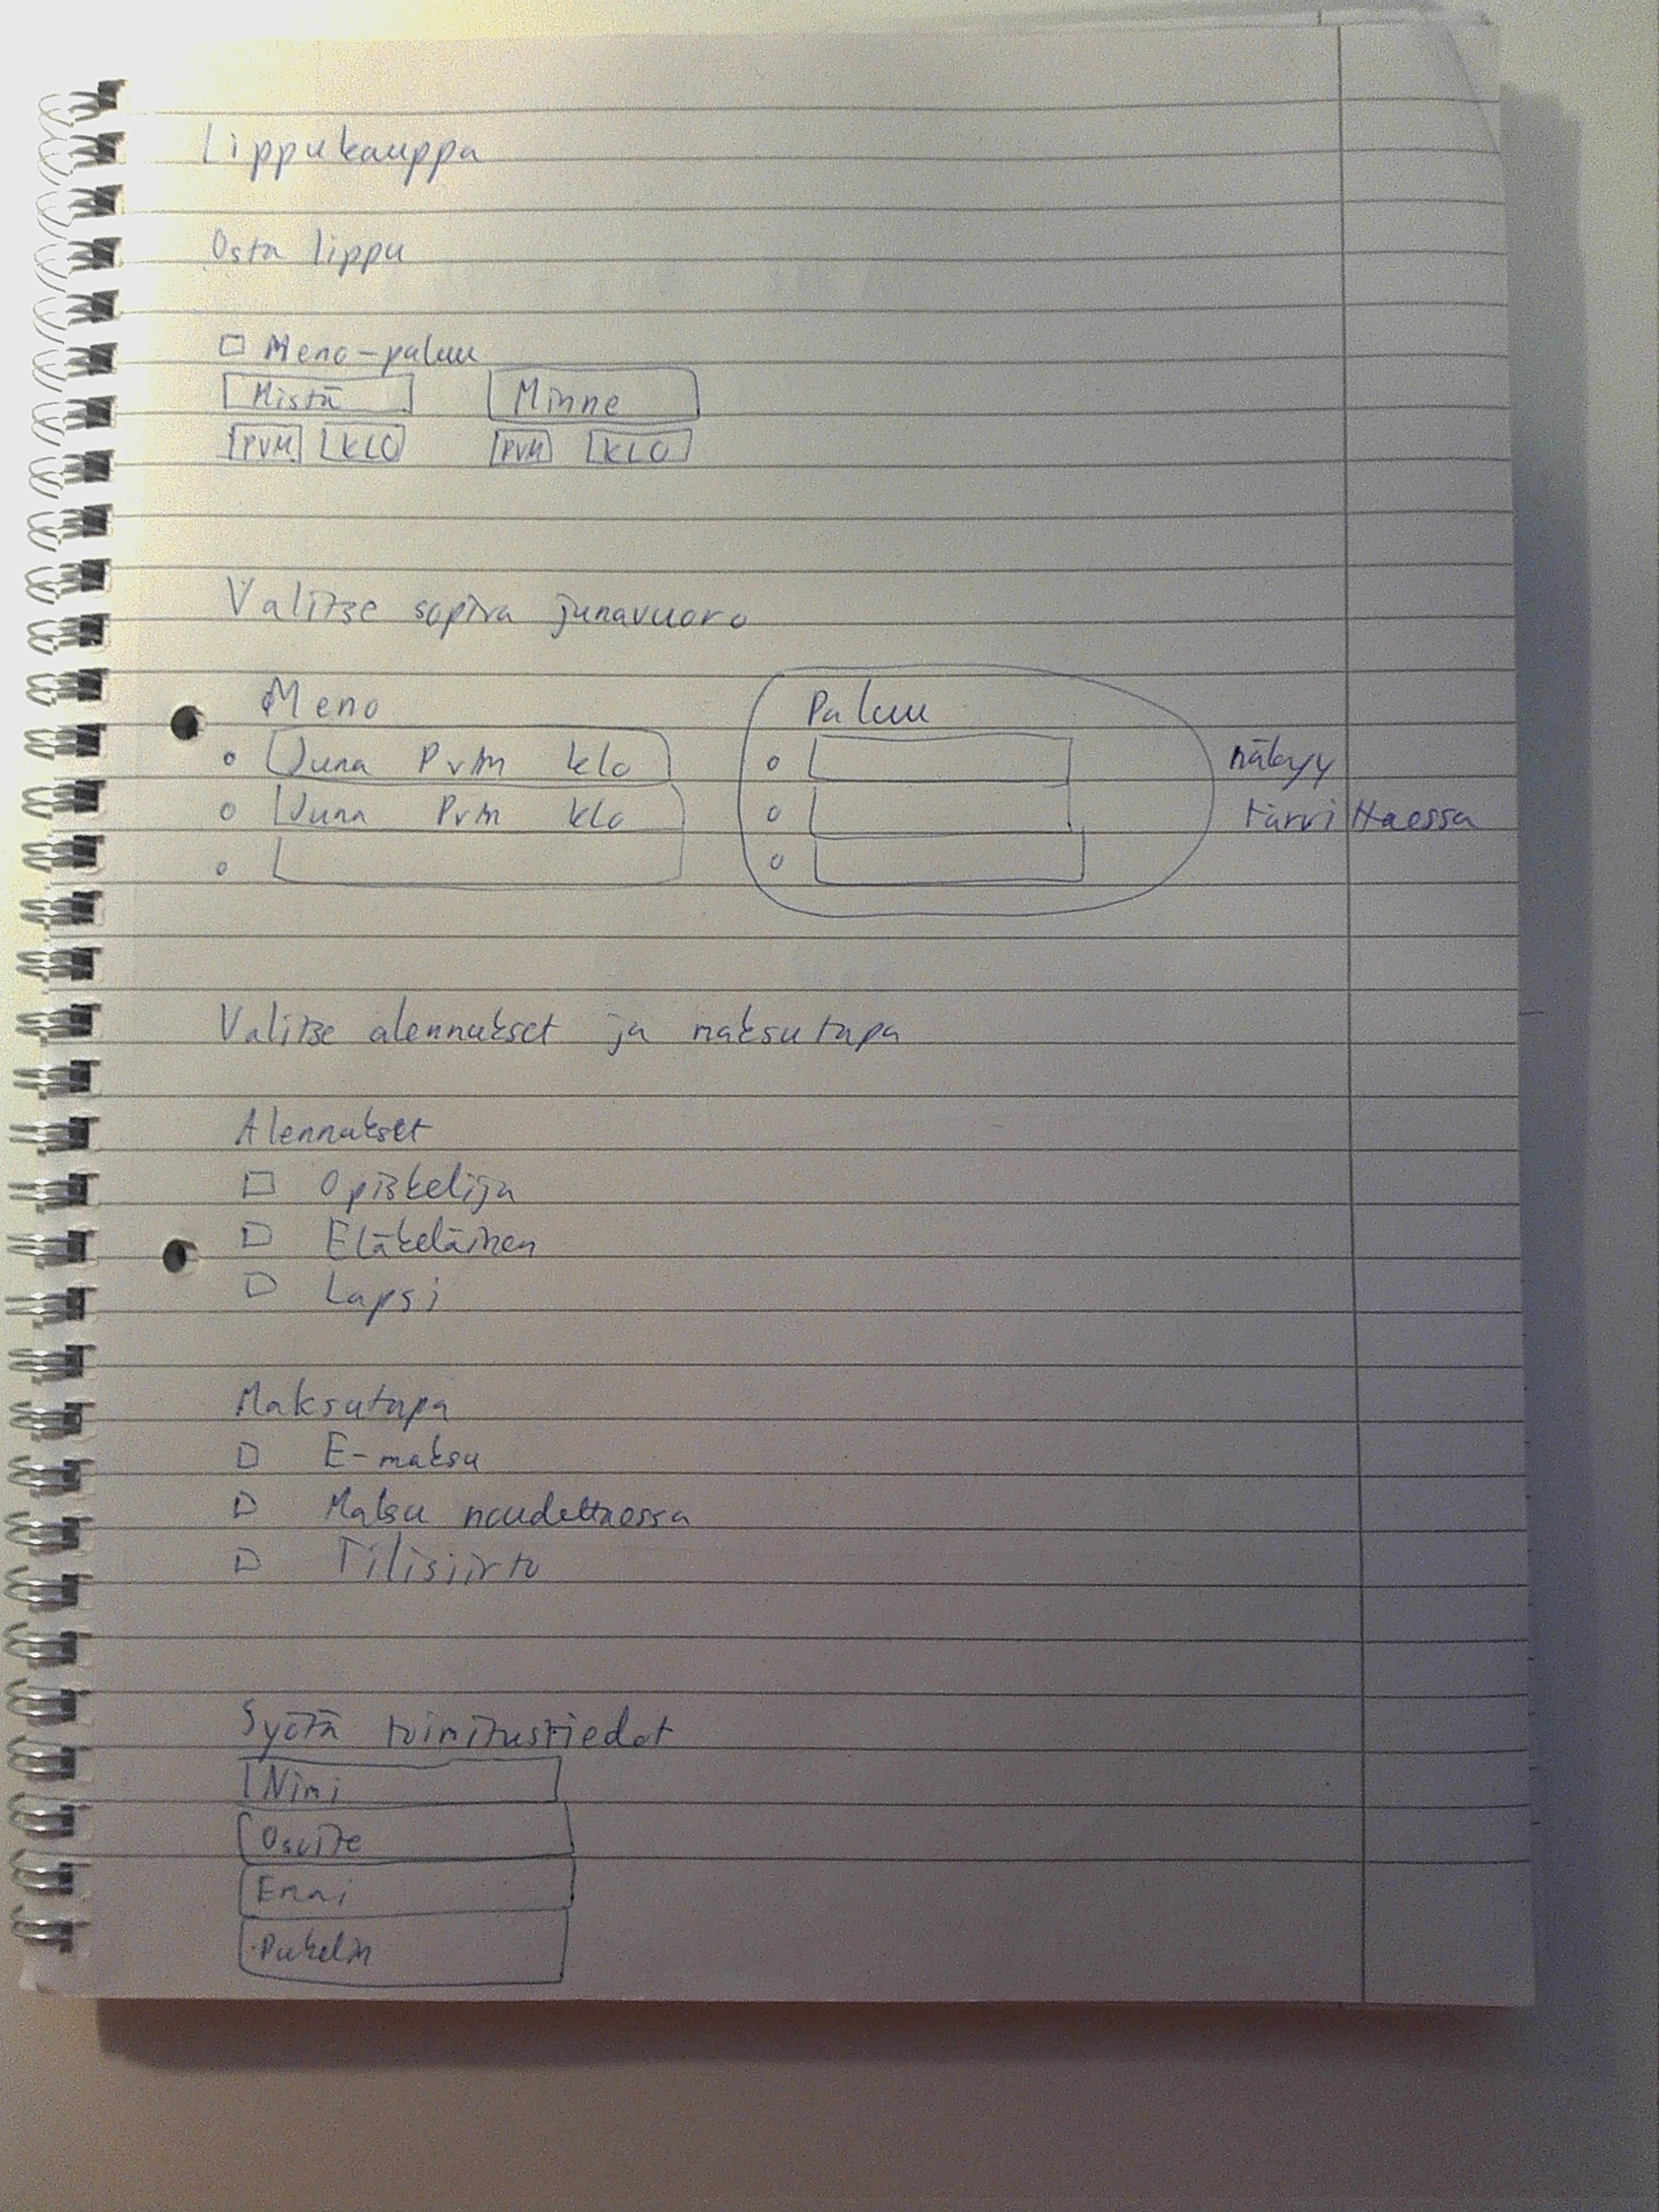 Lippukauppa
Osta lippu
Meno-paluu
Mistä Minne
PVM KLO PVM KLO
Valitse sopiva junavuoro
Meno Paluu
Juna Pvm klo näkyy
Juna Pvm klo tarvittaessa
Valitse alennukset ja maksutapa
Alennukset
Opiskelija
Eläkeläinen
Lapsi
Maksutapa
E-maksu
Maksu noudettaessa
Tilisiirto
Syötä toimitustiedot
Nimi
Osoite
Emai
Puhelin